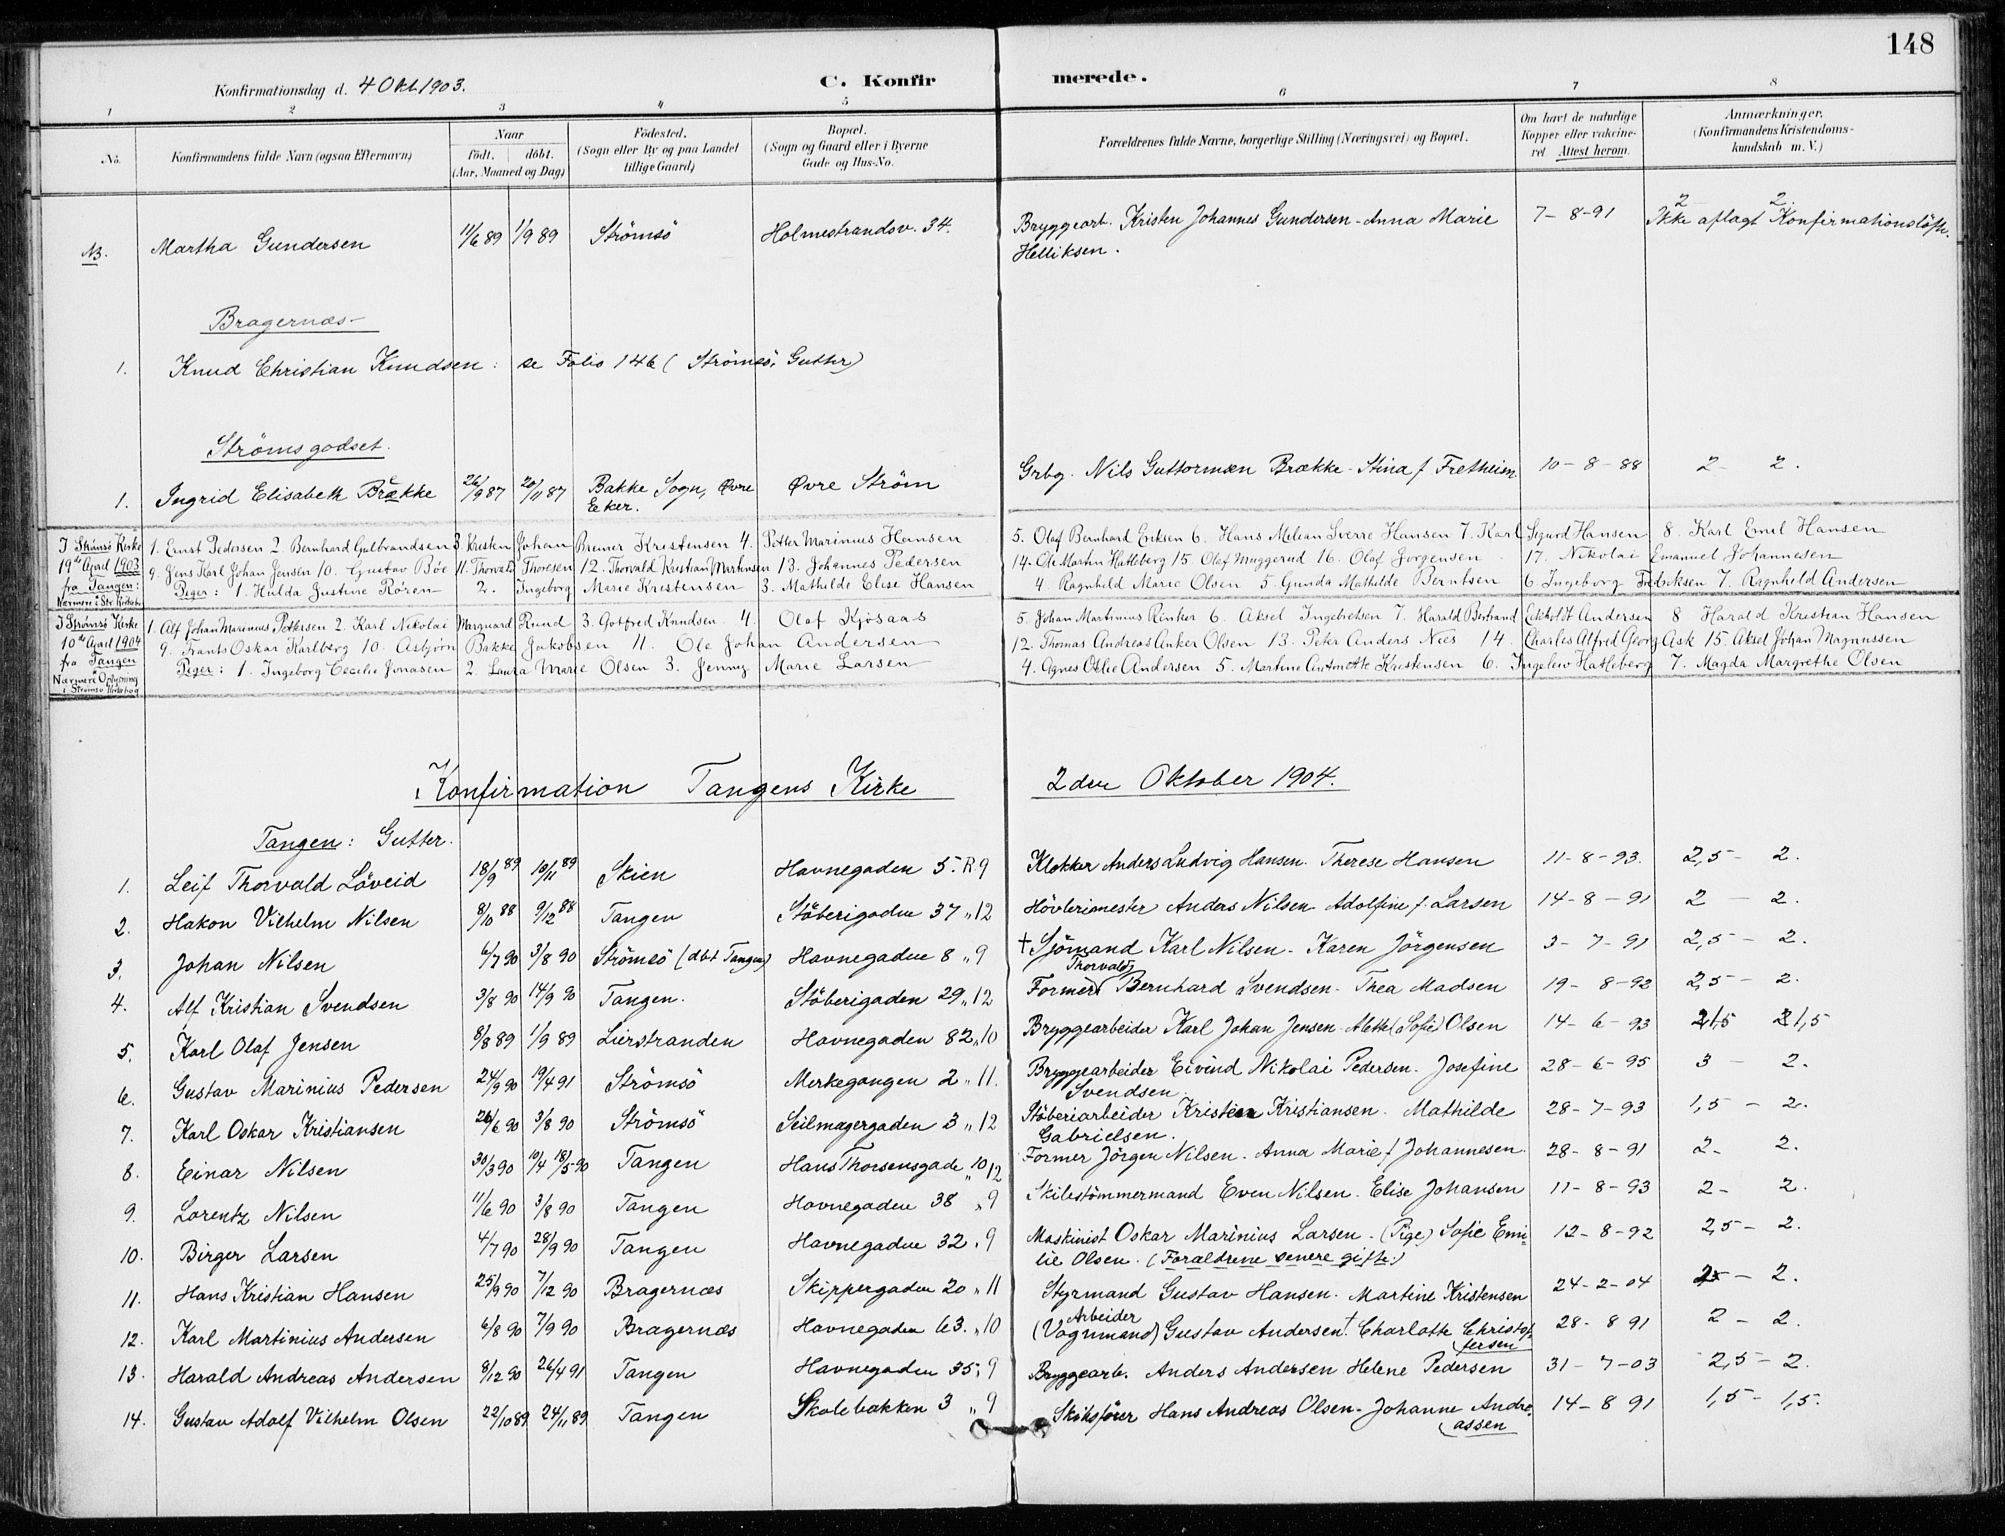 148
Konfirmationsdag d. 4 Okt. 1903. C. Konfirmerede.
1 2 3 4 5 6 7 8
No. Konfirmandens fulde Navn (ogsaa Efternavn) Naar født. døbt. (Aar, Maaned og Dag) Fødested. (Sogn eller By og paa Landet tillige Gaard) Bopæl. (Sogn og Gaard eller i Byerne Gade og Hus-No. Forældrenes fulde Navne, borgerlige Stilling (Næringsvei) og Bopæl. Om havt de naturlige Kopper eller vaccineret Attest herom. Anmærkninger. (Konfirmandens Kristendomskundskab m. V.)
NB. Martha Gundersen 11/6 89 1/9 89 Strömsö Holmestrandsv. 34. Bryggearb. Kristen Johannes Gundersen - Anna Marie 7-8-91 2 2.
Helliksen. Ikke aflagt Konfirmationsløfte.
Bragernæs
1. Knud Christian Knudsen: se Folio 146 (Strömsö, Gutter)
Strömsgodset.
1. Ingrid Elisabeth Brække 26/9 87 20/11 87 Bakke Sogn, Øvre Eker. Øvre Ström Grbg. Nils Guttormsen Brække - Stina f. Fretheim 10-8-88 2 2.
I Strømsø Kirke 19de April 1903 fra Tangen:
1. Ernst Pedersen 2. Bernhard Gulbrandsen 3. Kristen Johan Breiner Kristensen 4. Petter Marinius Hansen 5. Olaf Bernhard Eriksen 6. Hans Melian Sverre Hansen 7. Karl Sigurd Hansen 8. Karl Emil Hansen
9. Jens Karl Johan Jensen 10. Gustav Bøe 11. Thorvald Thoresen 12. Thorvald Kristian Martinsen 13. Johannes Pedersen 14. Ole Martin Hatleberg 15. Olaf Muggerud 16. Olaf Jørgensen 17. Nikolai Emanuel Johannesen
Piger: 1. Hulda Justine Røren 2. Ingeborg Marie Kristensen 3. Mathilde Elise Hansen 4. Ragnhild Marie Olsen 5. Gunda Mathilde Berntsen 6. Ingeborg Fredriksen 7. Ragnhild Andersen
I Strømsø Kirke 10de April 1904 fra Tangen Nærmere Oplysning i Strømsø Kirkebog
1. Alf Johan Marinius Pettersen 2. Karl Nikolai Marquard Rund 3. Gotfred Knudsen. 4. Olaf Kjøsaas 5. Johan Martinius Rinker 6. Aksel Ingebretsen 7. Harald Bertrand Eckholdt Andersen 8 Harald Kristian Hansen
9. Frants Oskar Karlberg 10. Asbjørn Bakke Jakobsen 11. Ole Johan Andersen 12. Thomas Andreas Anker Olsen 13. Peter Anders Nies 14. Charles Alfred Georg Ask 15. Aksel Johan Magnussen
Piger: 1. Ingeborg Cecilie Jonasen 2. Laura Marie Olsen 3. Jenny Marie Larsen 4. Agnes Otilie Andersen 5. Martine Antonette Kristensen 6. Ingelew Hatleberg 7. Magda Margrethe Olsen
Konfirmation Tangens Kirke 2den Oktober 1904.
Tangen: Gutter.
1. Leif Thorvald Löveid 18/9 89 10/11 89 Skien Havnegaden 5. R. 9 Klokker Anders Ludvig Hansen. Therese Hansen 11-8-93. 2,5 - 2.
2. Hakon Vilhelm Nilsen 8/10 88 9/12 88 Tangen Stöberigaden 37 „ 12 Hövlerimester Anders Nilsen Adolfine f. Larsen 14-8-91 2 - 2.
3. Johan Nilsen 6/7 90 3/8 90 Strömsö (dbt Tangen) Havnegaden 8 „ 9 † Sjömand Karl Nilsen - Karen Jörgensen 3-7-91 2,5 - 2.
4. Alf Kristian Svendsen 3/8 90 14/9 90 Tangen. Stöberigaden 29 „ 12 Former Thorvald Bernhard Svendsen - Thea Madsen 19-8-92 2,5 - 2.
5. Karl Olaf Jensen 8/8 89 1/9 89 Lierstranden Havnegaden 82 „ 10 Bryggearbeider Karl Johan Jensen - Aleth (Sofie) Olsen 14-6-93 1,5 1,5
6. Gustav Marinius Pedersen 24/9 90 19/4 91 Strömsö Merkegangen 2 „ 11. Bryggearbeider Eivind Nikolai Pedersen. Josefine 28-6-95 3 - 2.
Svendsen
7. Karl Oskar Kristiansen 26/6 90 3/8 90 Strömsö Seilmagergaden 3 „ 12 Stöberiarbeider Kristian Kristiansen. Mathilde 28-7-93 1,5 - 2.
Gabrielsen.
8. Einar Nilsen 30/3 90 10/4 18/5 90 Tangen Hans Thorsensgade 10 „ 12 Former Jörgen Nilsen. Anna Marie f Johannesen. 28-8-91 2 - 2.
9. Lorentz Nilsen 11/6 90 3/8 90 Tangen Havnegaden 38 „ 9 Skibstömmermand Even Nilsen. Elise Johansen 11-8-93 2 - 2.
10. Birger Larsen 4/7 90 28/9 90 Tangen Havnegaden 32 „ 9 Maskinist Oskar Marinius Larsen. (Pige) Sofie Emi- 12-8-92 2,5 - 2.
lie Olsen. (Forældrene senere gifte.)
11. Hans Kristian Hansen 25/9 90 7/12 90 Bragernæs Skippergaden 20 „ 11 Styrmand Gustav Hansen. Martine Kristensen 24-2-04 2,5 - 2.
12. Karl Martinius Andersen 6/8 90 7/9 90 Bragernæs Havnegaden 63. „ 10 Arbeider (Vognmand) Gustav Andersen † Charlotte Christoffersen 28-8 91 2 - 2.
13. Harald Andreas Andersen 8/12 90 26/4 91 Tangen Havnegaden 35 „ 9 Bryggearb. Anders Andersen Helene Pedersen 31-7-03 2,5 - 2.
14. Gustav Adolf Vilhelm Olsen 22/10 89 24/11 89 Tangen Skolebakken 3 „ 9 Skibsfører Hans Andreas Olsen - Johanne Andreassen 14-8 91 1,5 - 1,5.